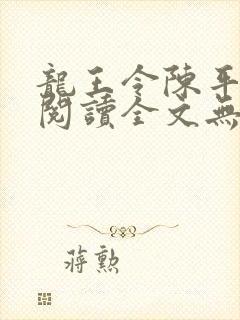 龍王令陳平
閱讀全文無
蔣勲